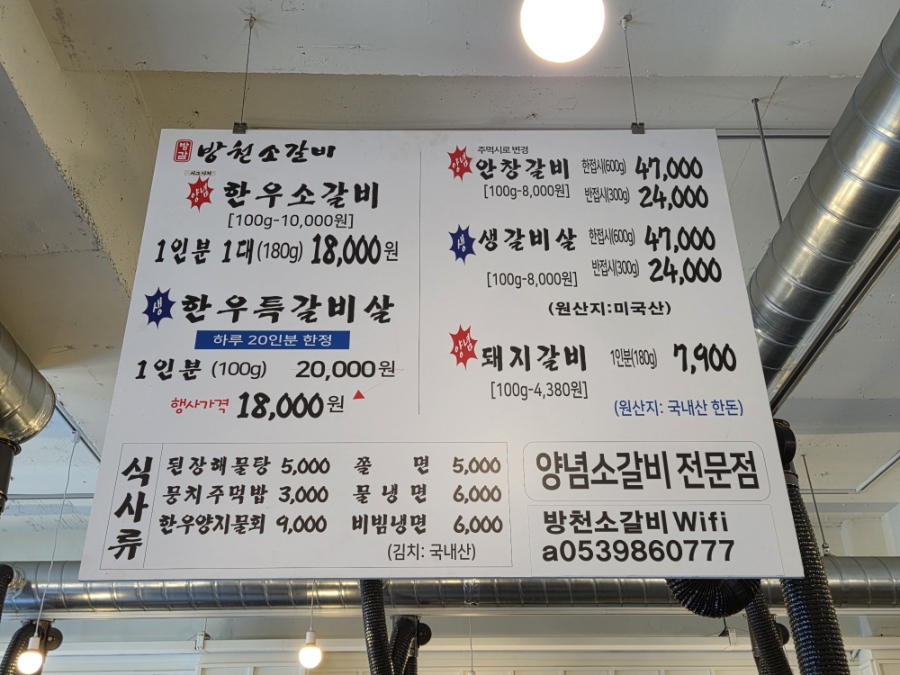 방갈 방천소갈비
양념 한우소갈비
[100g-10,000원]
1인분 1대(180g) 18,000원
생 한우특갈비살
하루 20인분 한정
1인분 (100g) 20,000원
행사가격 18,000원
주먹시로 변경
양념 안창갈비 한접시(600g) 47,000
[100g-8,000원] 반접시(300g) 24,000
생 생갈비살 한접시(600g) 47,000
[100g-8,000원] 반접시(300g) 24,000
(원산지:미국산)
양념 돼지갈비 1인분(180g) 7,900
[100g-4,380원]
(원산지: 국내산 한돈)
식사류
된장해물탕 5,000 쫄면 5,000
뭉치주먹밥 3,000 물냉면 6,000
한우양지물회 9,000 비빔냉면 6,000
(김치: 국내산)
양념소갈비 전문점
방천소갈비 Wifi
a0539860777